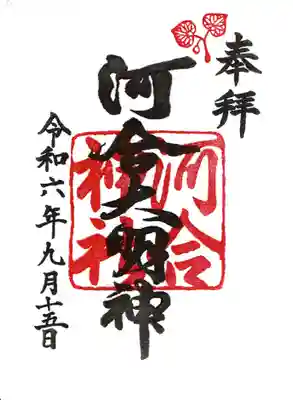 奉拝
河合大明神
河合神社
令和六年九月十五日